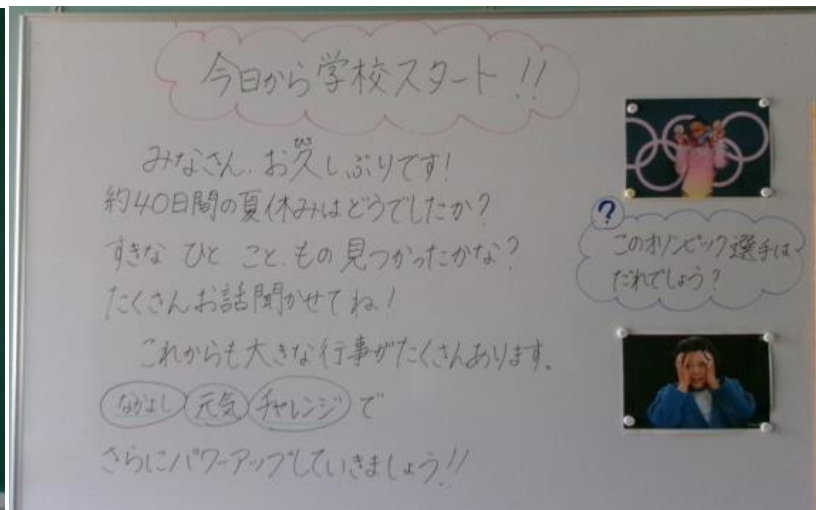 今日から学校スタート!!
みなさん、お久しぶりです!
約40日間の夏休みはどうでしたか?
すきな ひと こと もの 見つかったかな?
たくさんお話聞かせてね!
これからも大きな行事がたくさんあります。
なかよし 元気 チャレンジ で
さらにパワーアップしていきましょう!!
?
このオリンピック選手は
だれでしょう?